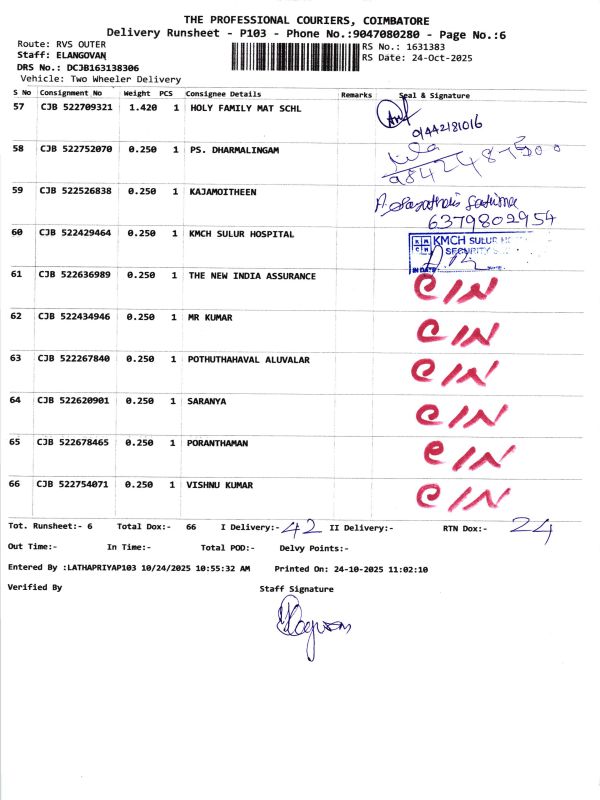 THE PROFESSIONAL COURIERS, COIMBATORE
Delivery Runsheet - P103 - Phone No.:9047080280 - Page No.:6
Route: RVS OUTER
RS No.: 1631383
Staff: ELANGOVAN
RS Date: 24-Oct-2025
DRS No.: DCJB163138306
Vehicle: Two Wheeler Delivery
S No Consignment No Weight PCS Consignee Details Remarks Seal & Signature
57 CJB 522709321 1.420 1 HOLY FAMILY MAT SCHL
01442181016
58 CJB 522752070 0.250 1 PS. DHARMALINGAM
59 CJB 522526838 0.250 1 KAJAMOITHEEN
6379802954
60 CJB 522429464 0.250 1 KMCH SULUR HOSPITAL KMCH SULUR
SECURITY
IN DATE
61 CJB 522636989 0.250 1 THE NEW INDIA ASSURANCE C/N
62 CJB 522434946 0.250 1 MR KUMAR C/N
63 CJB 522267840 0.250 1 POTHUTHAHAVAL ALUVALAR C/N
64 CJB 522620901 0.250 1 SARANYA C/N
65 CJB 522678465 0.250 1 PORANTHAMAN C/N
66 CJB 522754071 0.250 1 VISHNU KUMAR C/N
Tot. Runsheet:- 6 Total Dox:- 66 I Delivery:- 42 II Delivery:- RTN Dox:- 24
Out Time:- In Time:- Total POD:- Delvy Points:-
Entered By :LATHAPRIYAP103 10/24/2025 10:55:32 AM Printed On: 24-10-2025 11:02:10
Verified By Staff Signature